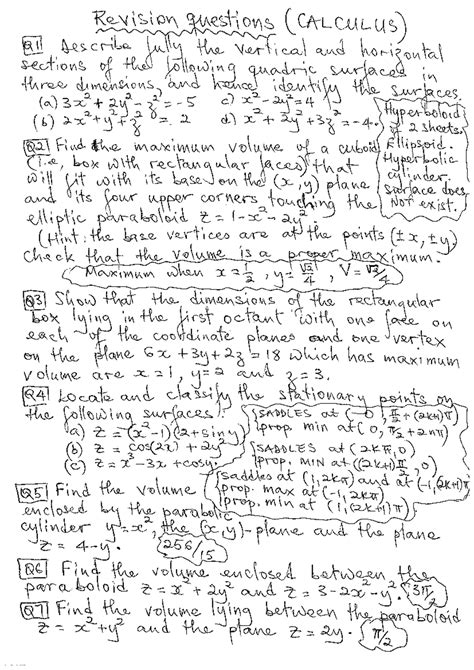 Revision questions (CALCULUS)
Q1 Describe fully the vertical and horizontal
sections of the following quadric surfaces in
three dimensions, and hence identify the surfaces.
(a) 3x² + 2y² - z² = -5 c) x² - 2y² = 4
(b) 2x² + y² + z² = 2 d) x² + 2y² + 3z² = -4.
Hyperboloid
of 2 sheets.
Ellipsoid.
Hyperbolic
cylinder.
Surface does
Not exist.
Q2 Find the maximum volume of a cuboid
(i.e., box with rectangular faces) that
will fit with its base on the (x,y) plane
and its four upper corners touching the
elliptic paraboloid z = 1-x²-2y².
(Hint: the base vertices are at the points (±x, ±y)
Check that the volume is a proper maximum.
Maximum when x = 1/2, y = √2/4, V = √2/4
Q3 Show that the dimensions of the rectangular
box lying in the first octant with one face on
each of the coordinate planes and one vertex
on the plane 6x + 3y + 2z = 18 which has maximum
volume are x = 1, y = 2 and z = 3.
Q4 Locate and classify the stationary points on
the following surfaces:
a) z = (x²-1)(2+siny)
(b) z = cos(2x) + 2y²
(c) z = x³-3x + cosy.
prop. min at (0, π/2 + 2nπ)
SADDLES at (2kπ, 0)
prop. MIN at ((2k+1)π/2, 0)
saddles at (1, 2kπ) and at (-1, (2k+1)π)
prop. max at (-1, 2kπ)
prop. min at (1, (2k+1)π)
Q5 Find the volume
enclosed by the parabolic
cylinder y = x², the (x,y)-plane and the plane
z = 4-y. 256/15
Q6 Find the volume enclosed between the
paraboloid z = x² + 2y² and z = 3-2x²-y². 3π/2
Q7 Find the volume lying between the paraboloid
z = x² + y² and the plane z = 2y. π/2